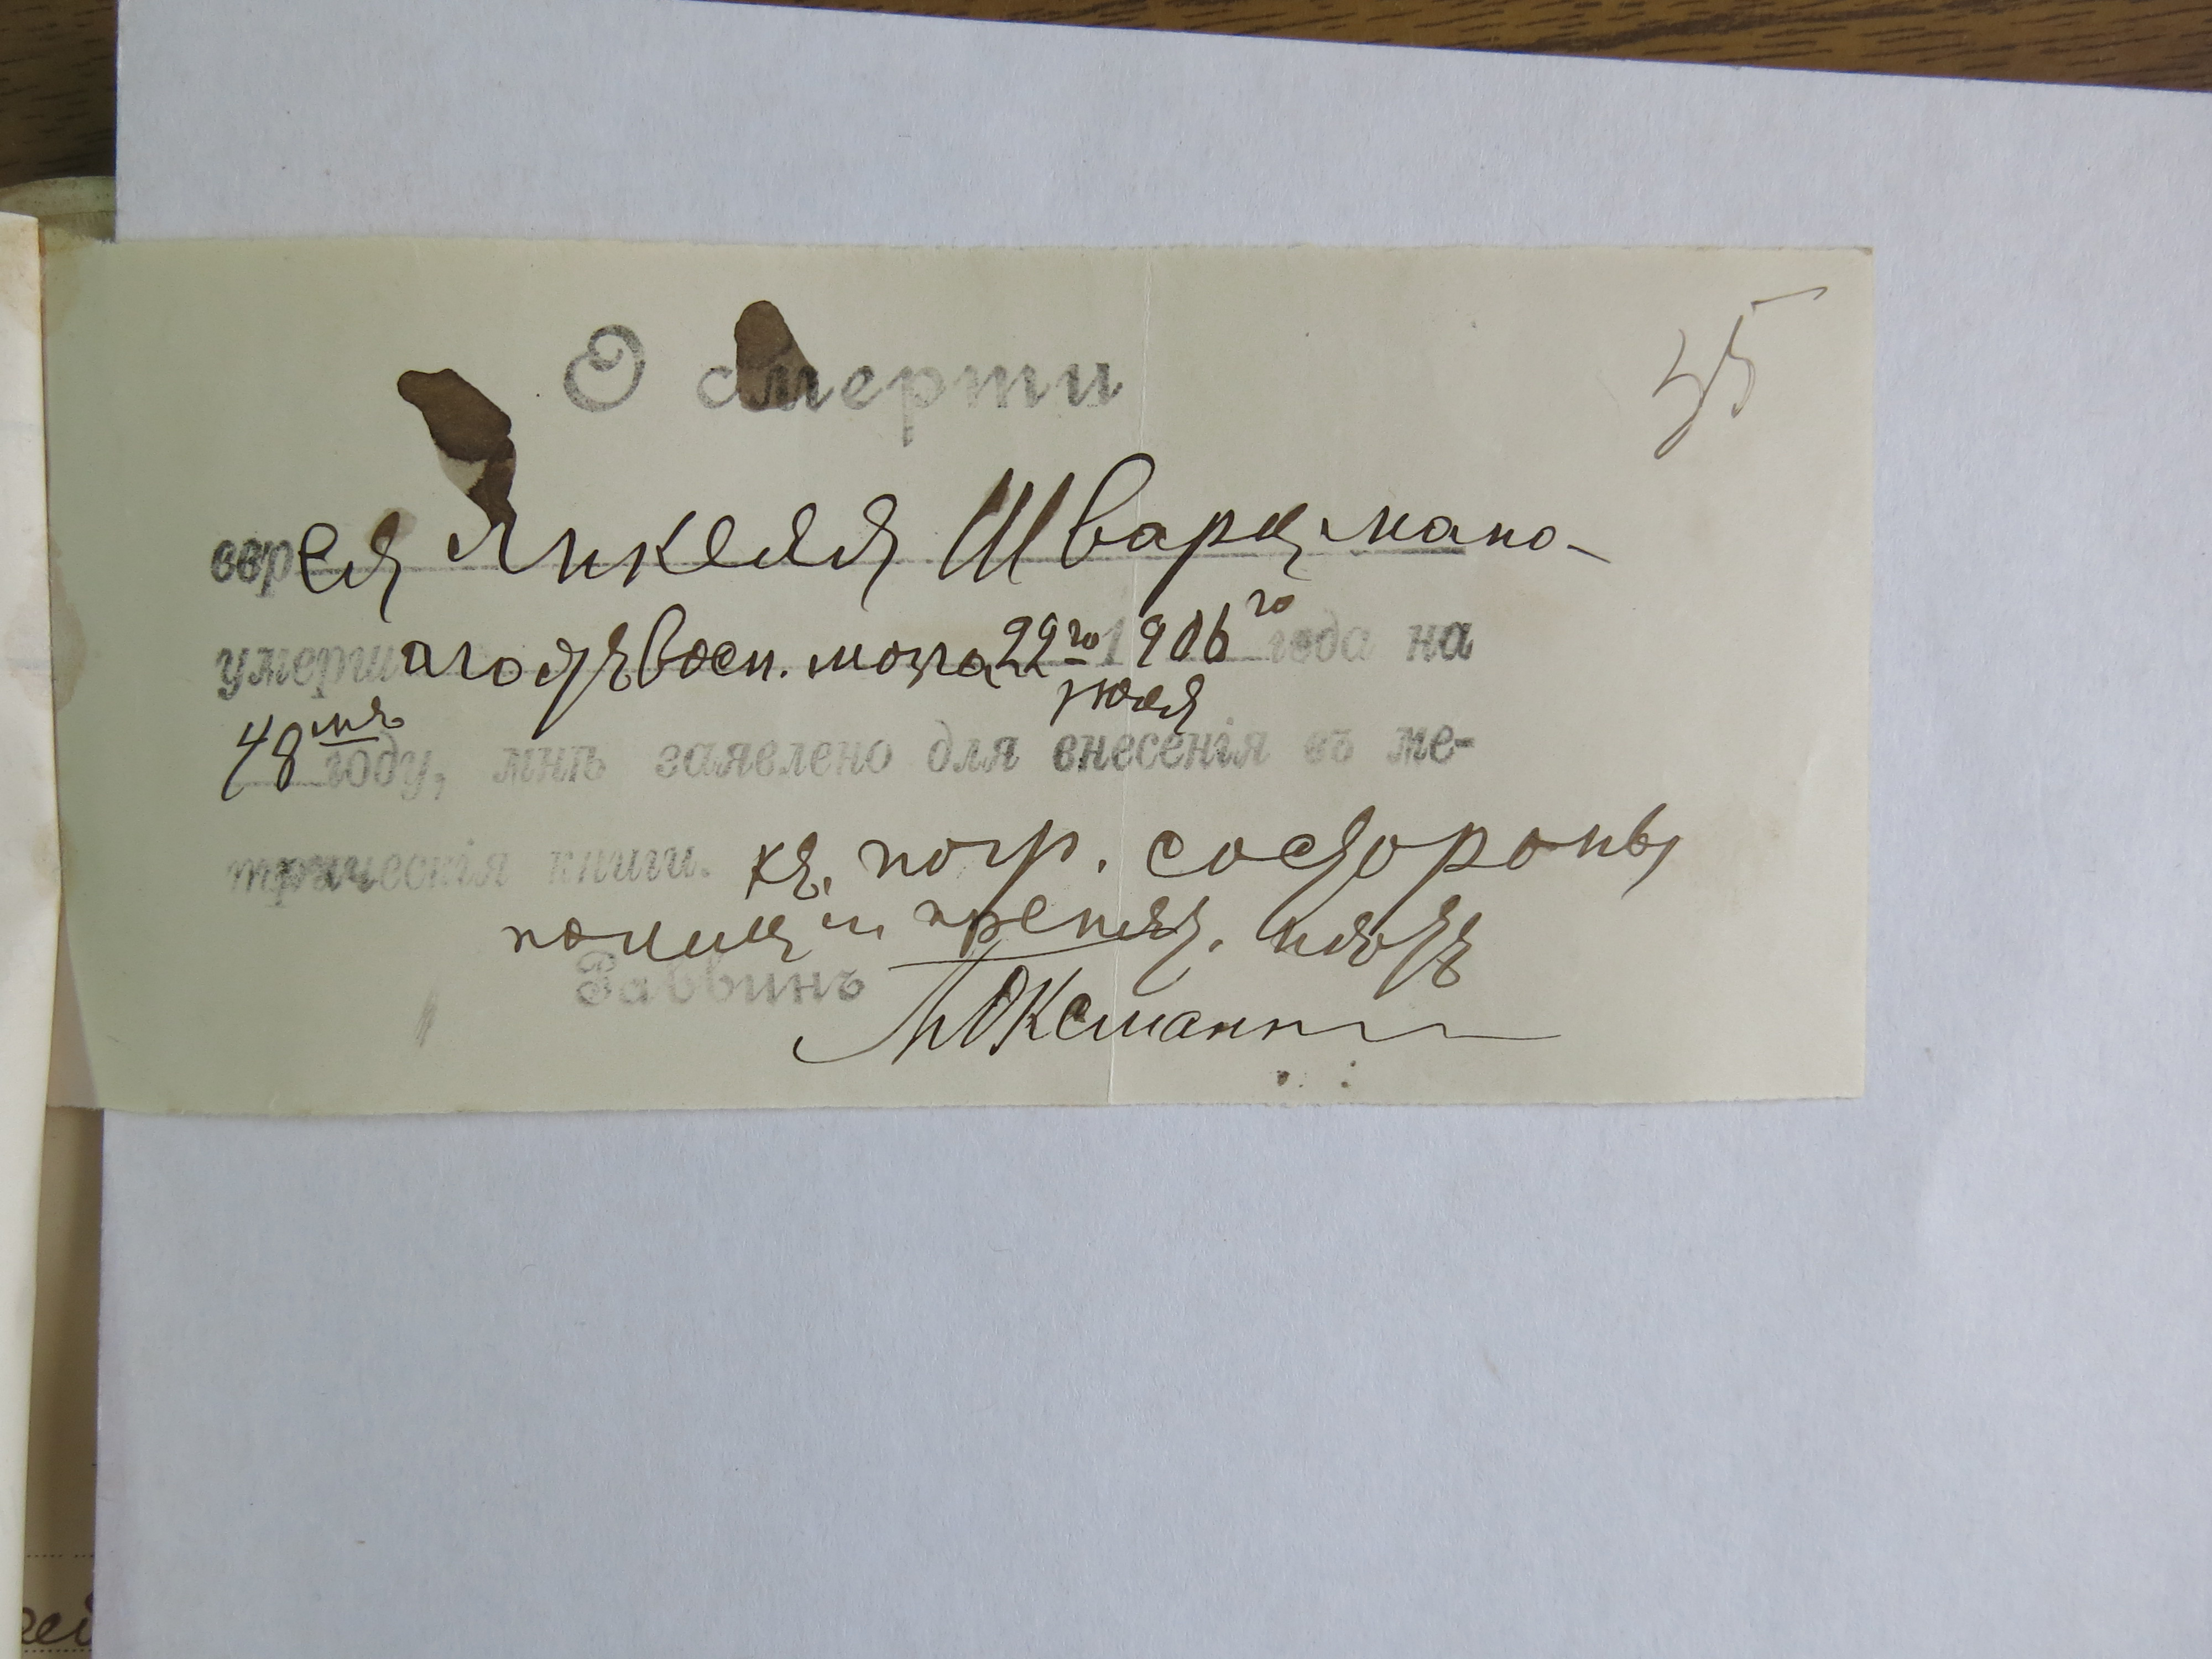 35
О смерти
еврея Янкеля Шварцмана
умершаго отъ восп. мозга 22го июля 1906го года на
48мъ году, мнѣ заявлено для внесенія въ ме-
трическія книги. Къ погр. со стороны
полиціи препят. нѣтъ
Раввинъ Оксман